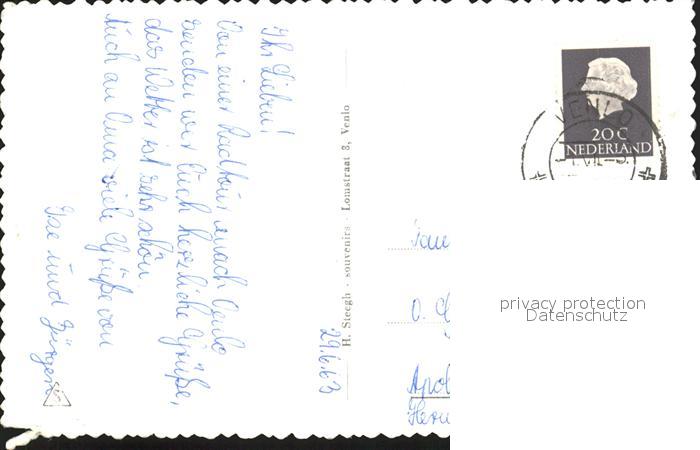 Ihr Lieben!
Von einer Radtour nach Venlo
senden wir Euch herzliche Grüße,
das Wetter ist sehr schön
Auch an Oma viele Grüße von
Ilse und Jürgen
29.6.63
H. Steegh - souvenirs - Lomstraat 3, Venlo
VENLO
20 C
NEDERLAND
O.
Apol
privacy protection
Datenschutz